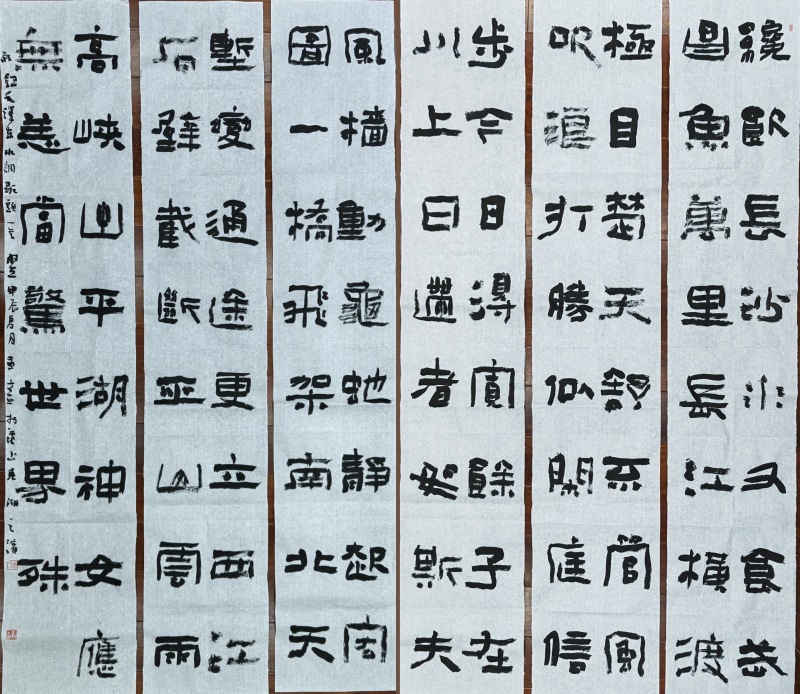 纔飲長沙水又食武
昌魚萬里長江横渡
極目楚天舒不管風
吹浪打勝似閒庭信
步今日得寬餘子在
川上曰逝者如斯夫
風檣動龜蛇靜起宏
圖一橋飛架南北天
塹變通途更立西江
石壁截斷巫山雲雨
高峽出平湖神女應
無恙當驚世界殊
録毛澤東水調歌頭一 甲辰 月 湖之濱